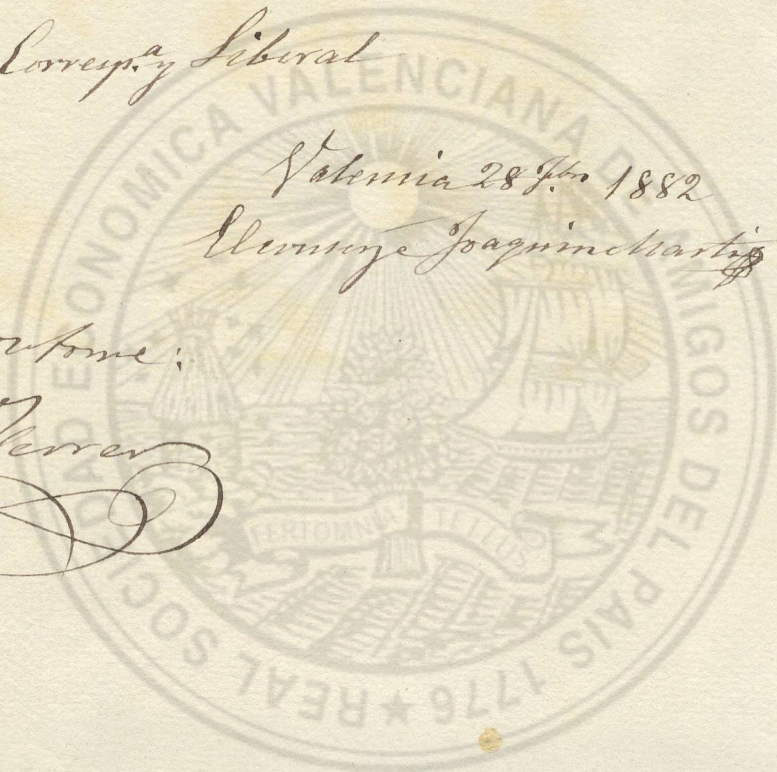 Corresp.a y Liberal
Valencia 28 Fbro 1882
El conserje Joaquin Marti
Ferrer
REAL SOCIEDAD ECONOMICA VALENCIANA DE AMIGOS DEL PAIS 1776
FERT OMNIA TELLUS